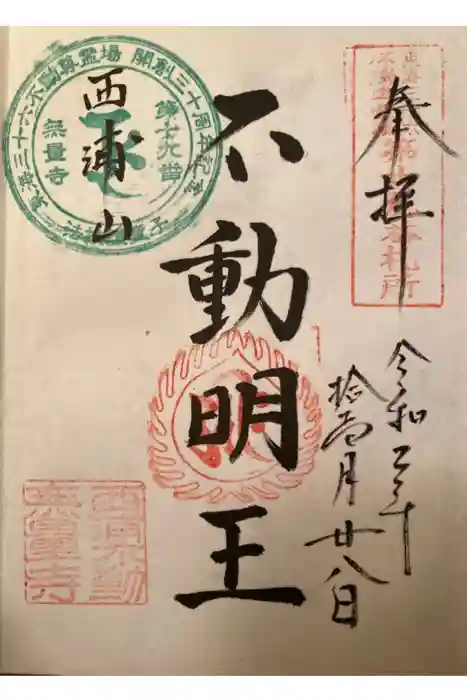 奉拝
令和二年
拾壱月廿八日
不動明王
西浦山
三十六不動尊霊場 開創三十周年記念
第十九番
無量寺
西浦不動
無量寺